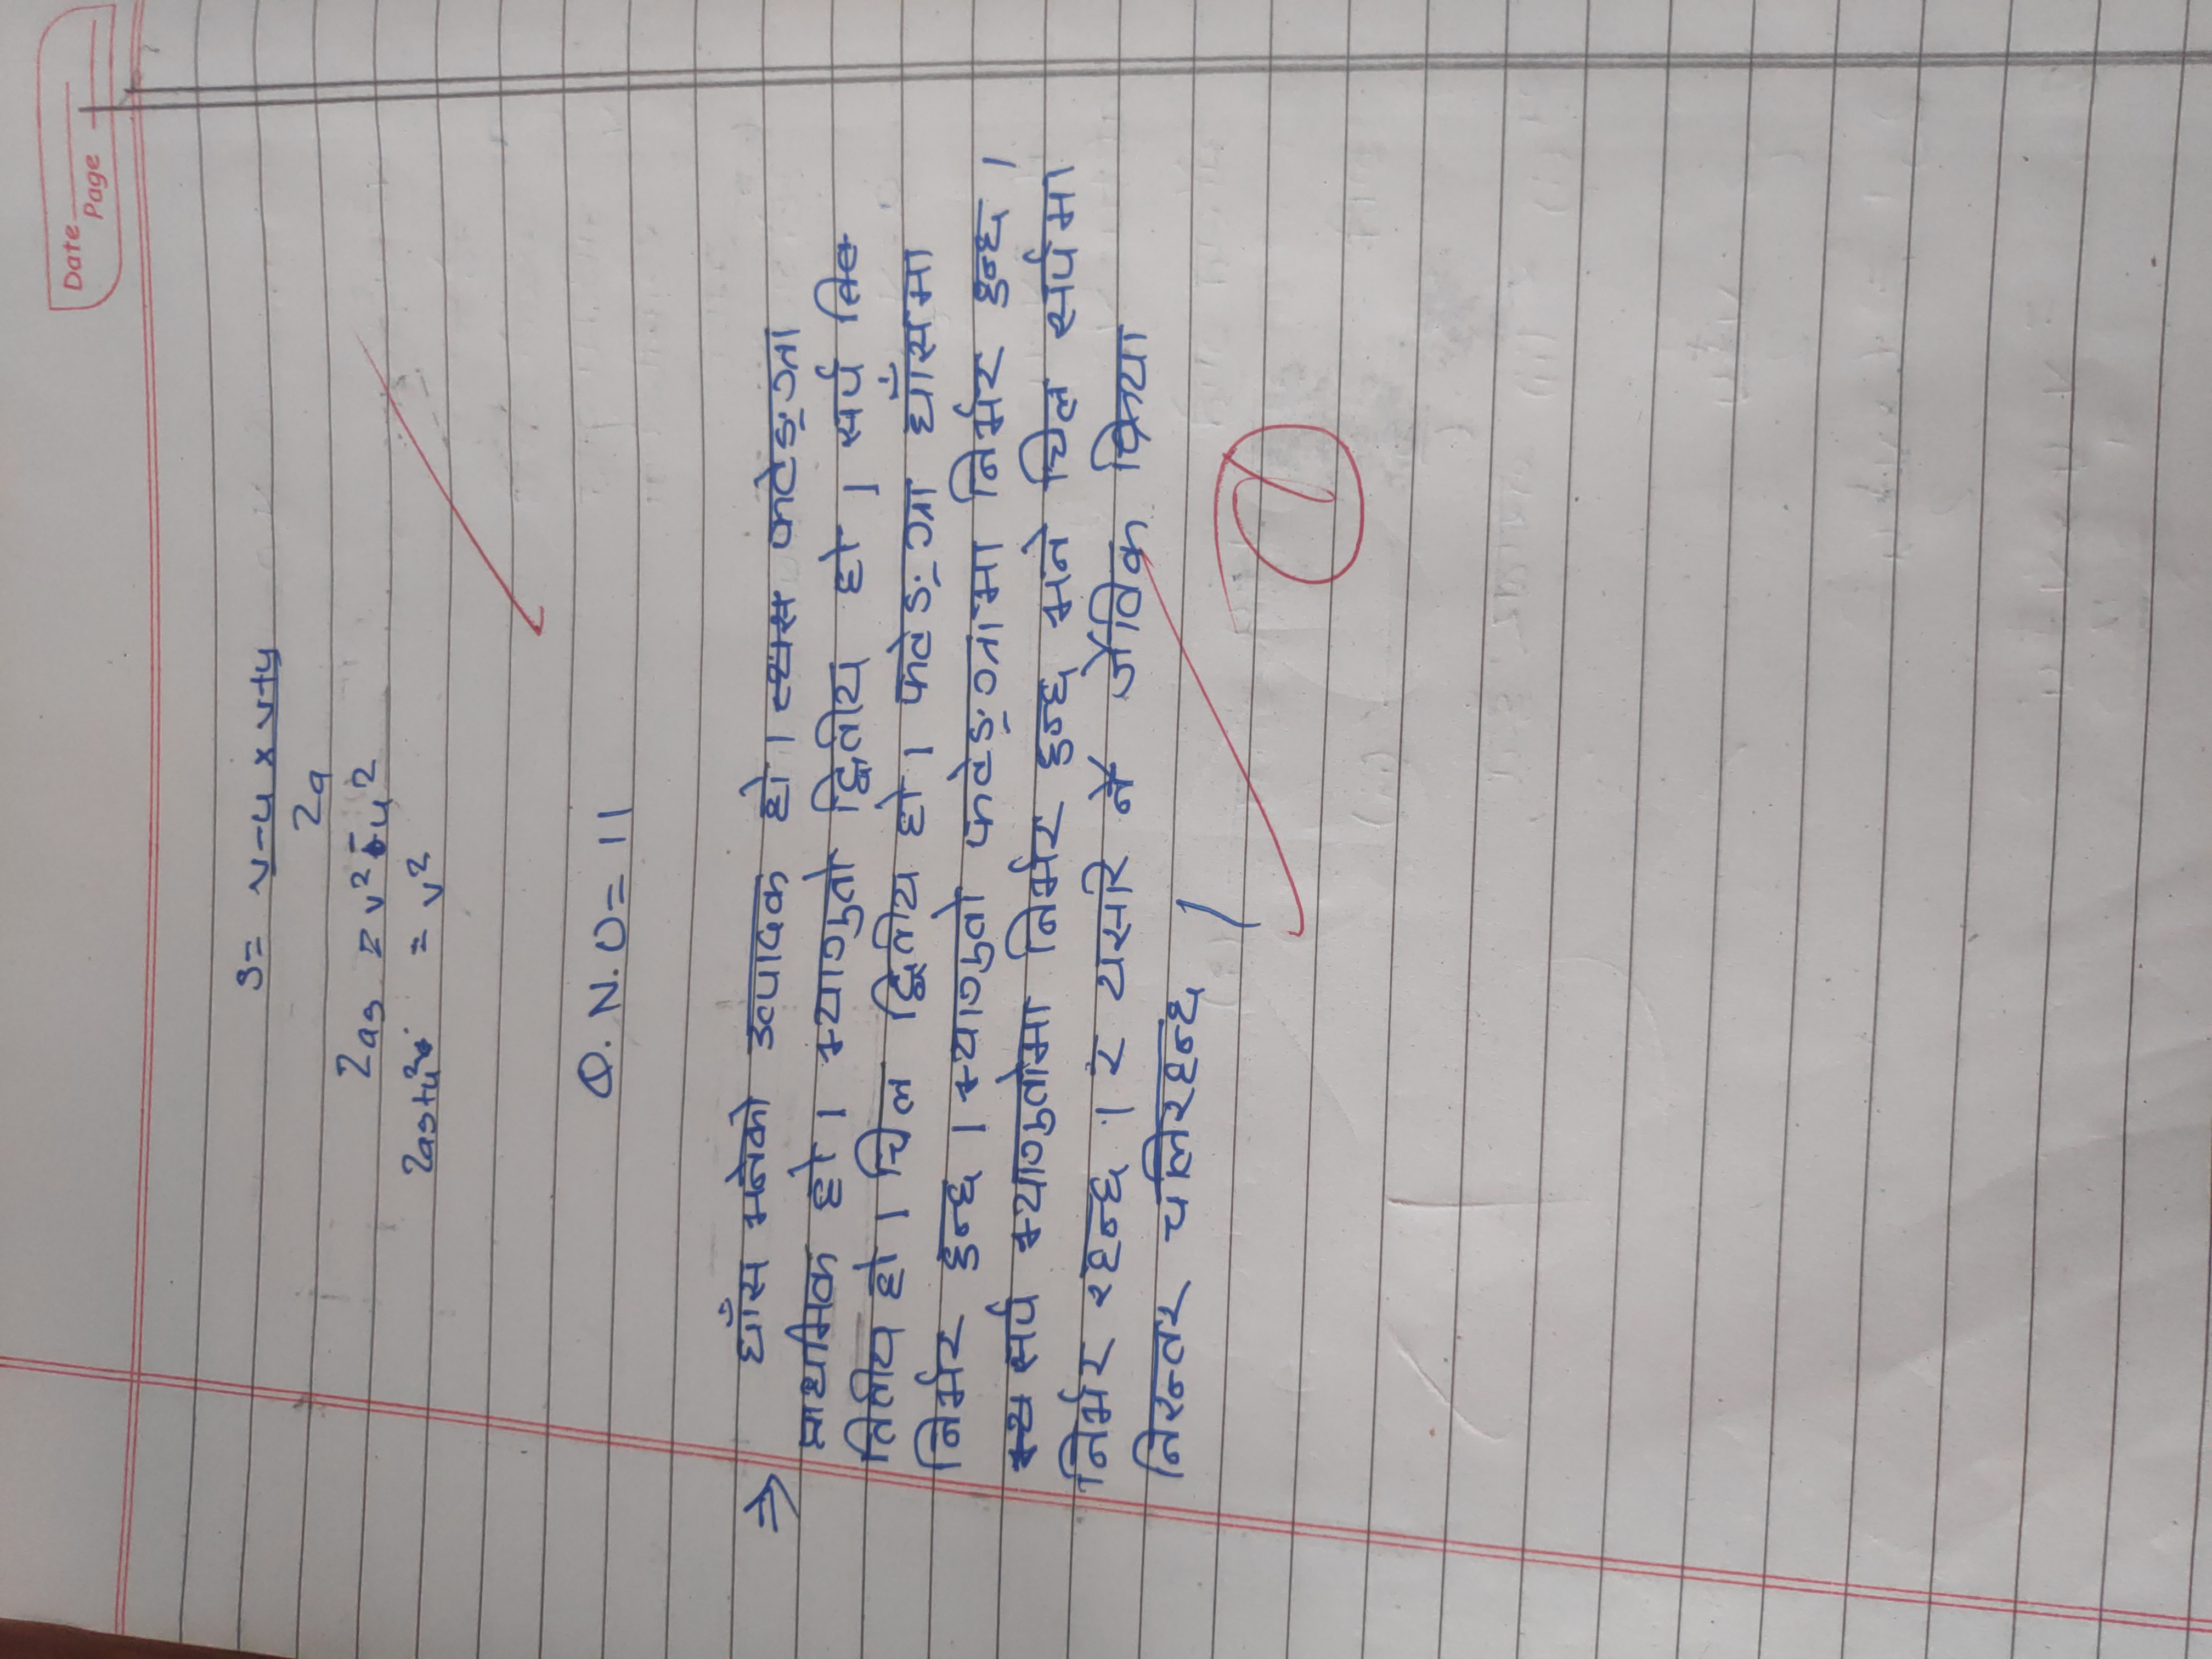 Date
Page
s= v-u x v+u
2a
2as = v² - u²
2as+u² = v²
Q. N. O = 11
⇒ घाँस भनेको उत्पादक हो। फटेङ्ग्रा
प्राथमिक हो। भ्यागुतो द्धितीय हो। सर्प
तितीय हो। चिल द्धितीय हो। फटेङ्ग्रा घाँसमा
निर्भर हुन्छ। भ्यागुतो फटेङ्ग्रामा निर्भर हुन्छ।
सर्प भ्यागुतोमा निर्भर हुन्छ भने चिल सर्पमा
निर्भर रहन्छ। र यसरि नै जैविक क्रिया
निरन्तर चलिरहन्छ।
1